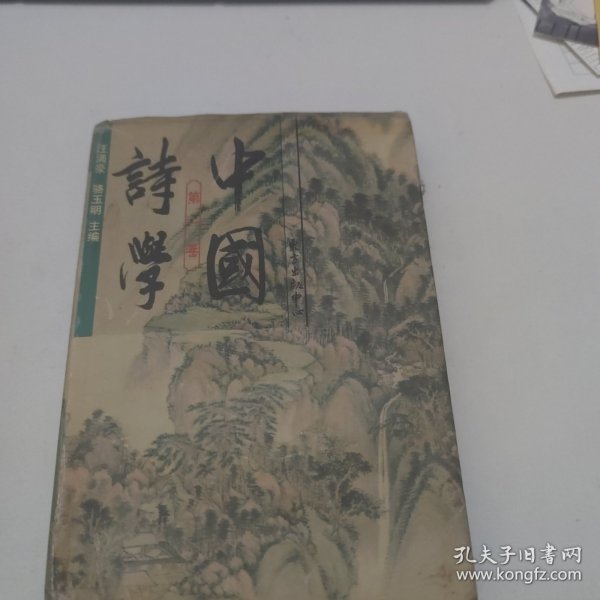 中國
詩學
第
卷
汪涌豪 骆玉明 主编
东方出版中心
孔夫子旧书网
www.kongfz.com